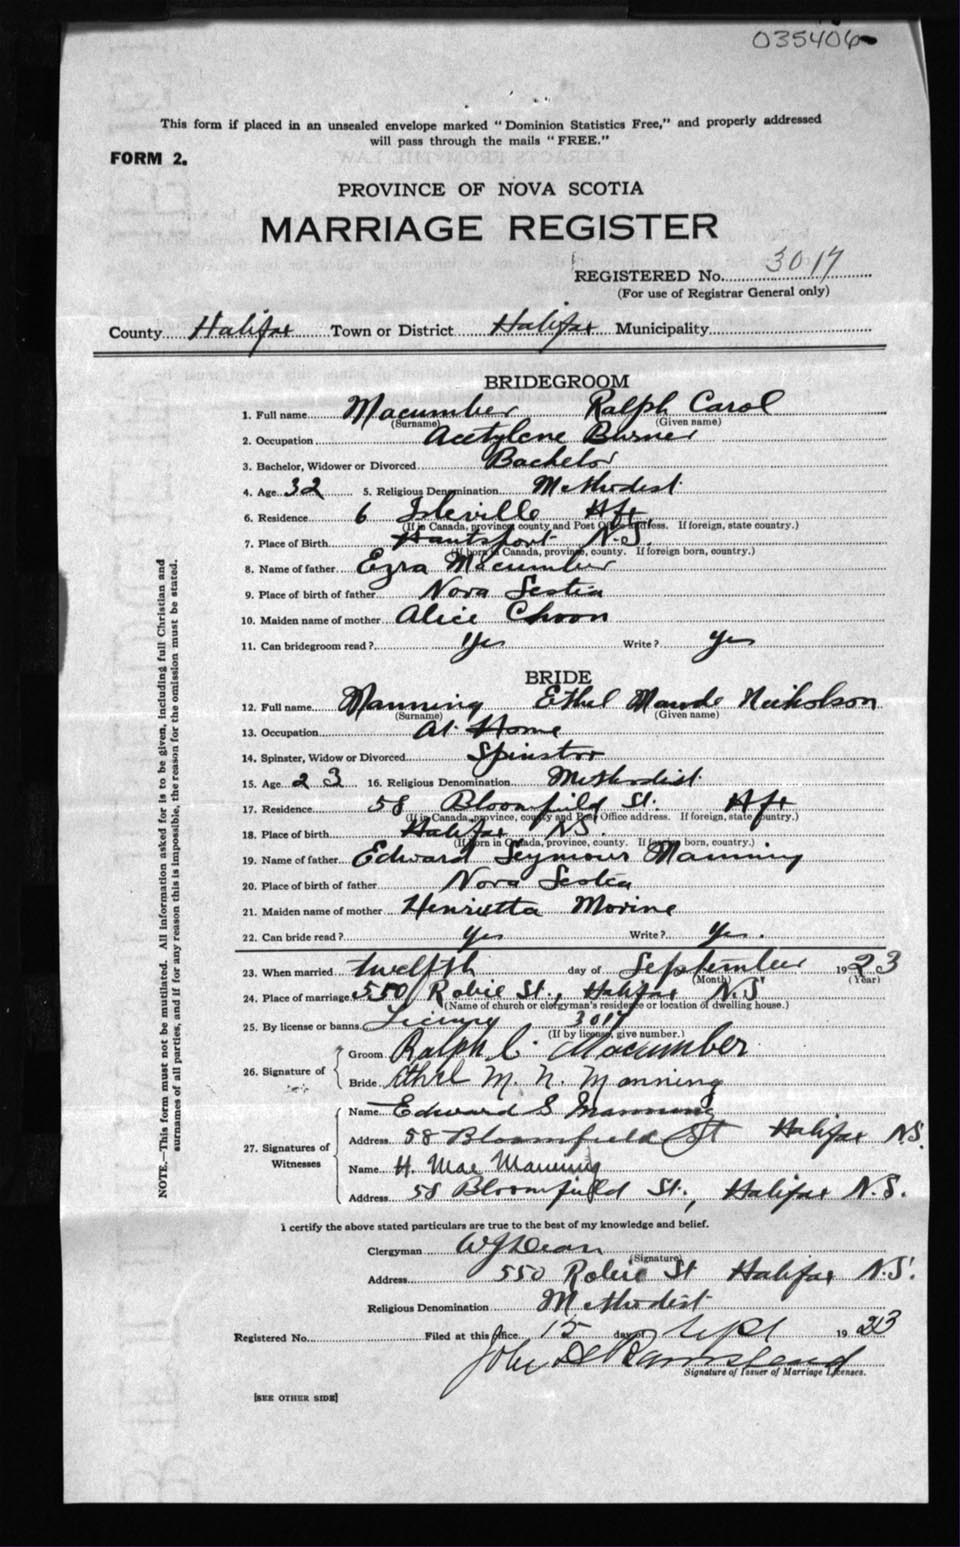 035406
This form if placed in an unsealed envelope marked "Dominion Statistics Free," and properly addressed
will pass through the mails "FREE."
FORM 2.
PROVINCE OF NOVA SCOTIA
MARRIAGE REGISTER
REGISTERED No. 3017
(For use of Registrar General only)
County Halifax Town or District Halifax Municipality
BRIDEGROOM
1. Full name Macumber Ralph Carol
(Surname) (Given name)
2. Occupation Acetylene Burner
3. Bachelor, Widower or Divorced Bachelor
4. Age 32 5. Religious Denomination Methodist
6. Residence 6 Isleville Hfx
(If in Canada, province, county and Post Office address. If foreign, state country.)
7. Place of Birth Hantsport N.S.
(If born in Canada, province, county. If foreign born, country.)
8. Name of father Ezra Macumber
9. Place of birth of father Nova Scotia
10. Maiden name of mother Alice
11. Can bridegroom read? Yes Write? Yes
BRIDE
12. Full name Manning Ethel Maude Nickolson
(Surname) (Given name)
13. Occupation At Home
14. Spinster, Widow or Divorced Spinster
15. Age 23 16. Religious Denomination Methodist
17. Residence 58 Bloomfield St. Hfx
(If in Canada, province, county and Post Office address. If foreign, state country.)
18. Place of birth Halifax N.S.
(If born in Canada, province, county. If foreign born, country.)
19. Name of father Edward Seymour Manning
20. Place of birth of father Nova Scotia
21. Maiden name of mother Henrietta Morine
22. Can bride read? Yes Write? Yes.
23. When married twelfth day of September 1923
(Month) (Year)
24. Place of marriage 550 Robie St., Halifax N.S
(Name of church or clergyman's residence or location of dwelling house.)
25. By license or banns 3017
(If by license, give number.)
26. Signature of
Groom Ralph C. Macumber
Bride Ethel M. N. Manning
27. Signatures of Witnesses
Name Edward S Manning
Address 58 Bloomfield St Halifax N.S.
Name H. Mae Manning
Address 58 Bloomfield St., Halifax N.S.
I certify the above stated particulars are true to the best of my knowledge and belief.
Clergyman WJ Dean
(Signature)
Address 550 Robie St Halifax N.S.
Religious Denomination Methodist
Registered No. Filed at this office 15 day of Sept 1923
John
Signature of Issuer of Marriage Licenses.
[SEE OTHER SIDE]
NOTE.—This form must not be mutilated. All information asked for is to be given, including full Christian and
surnames of all parties, and if for any reason this is impossible, the reason for the omission must be stated.